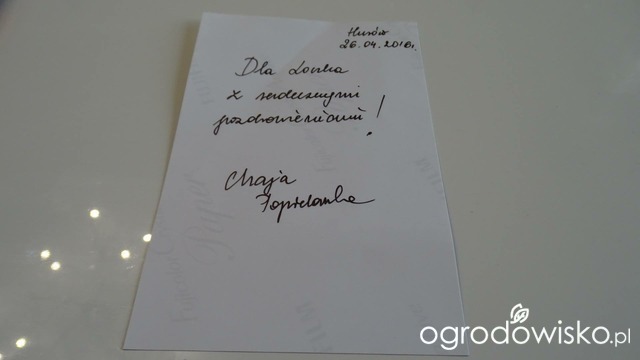 Husów
26.04.2018r.
Dla
z serdecznymi
pozdrowieniami!
Maja
Popielarska
ogrodowisko.pl